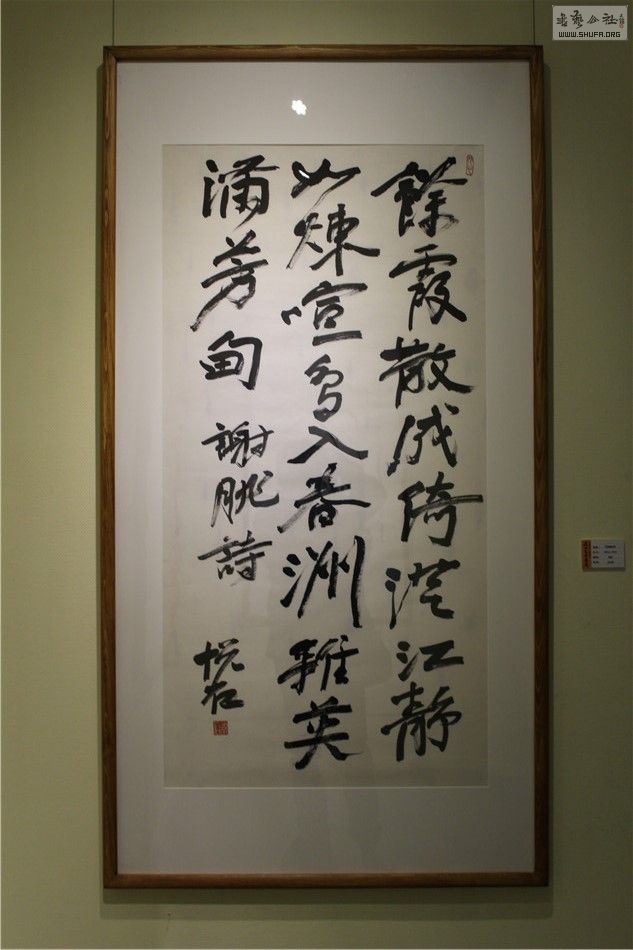 書藝公社
WWW.SHUFA.ORG
餘霞散成綺澄江静
如煉喧鳥入春洲雜英
滿芳甸 謝朓詩